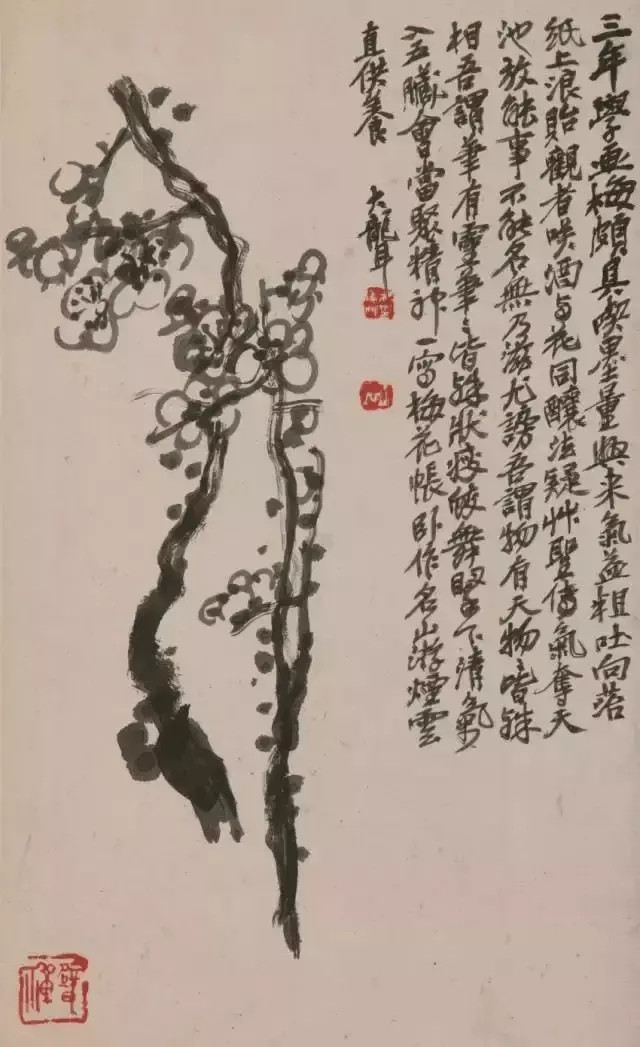 三年學画梅頗具喫墨量興来氣益粗吐向苔
紙上浪貽觀者咲酒与花同釀法疑艸聖傳氣奪天
池放能事不能名無乃滋尤謗吾謂物有天物〻皆殊
相吾謂筆有靈筆〻皆殊狀瘦蛟舞壑下清氣
入五臟會當聚精神一寫梅花帳卧作名山游煙雲
真供養 大聾